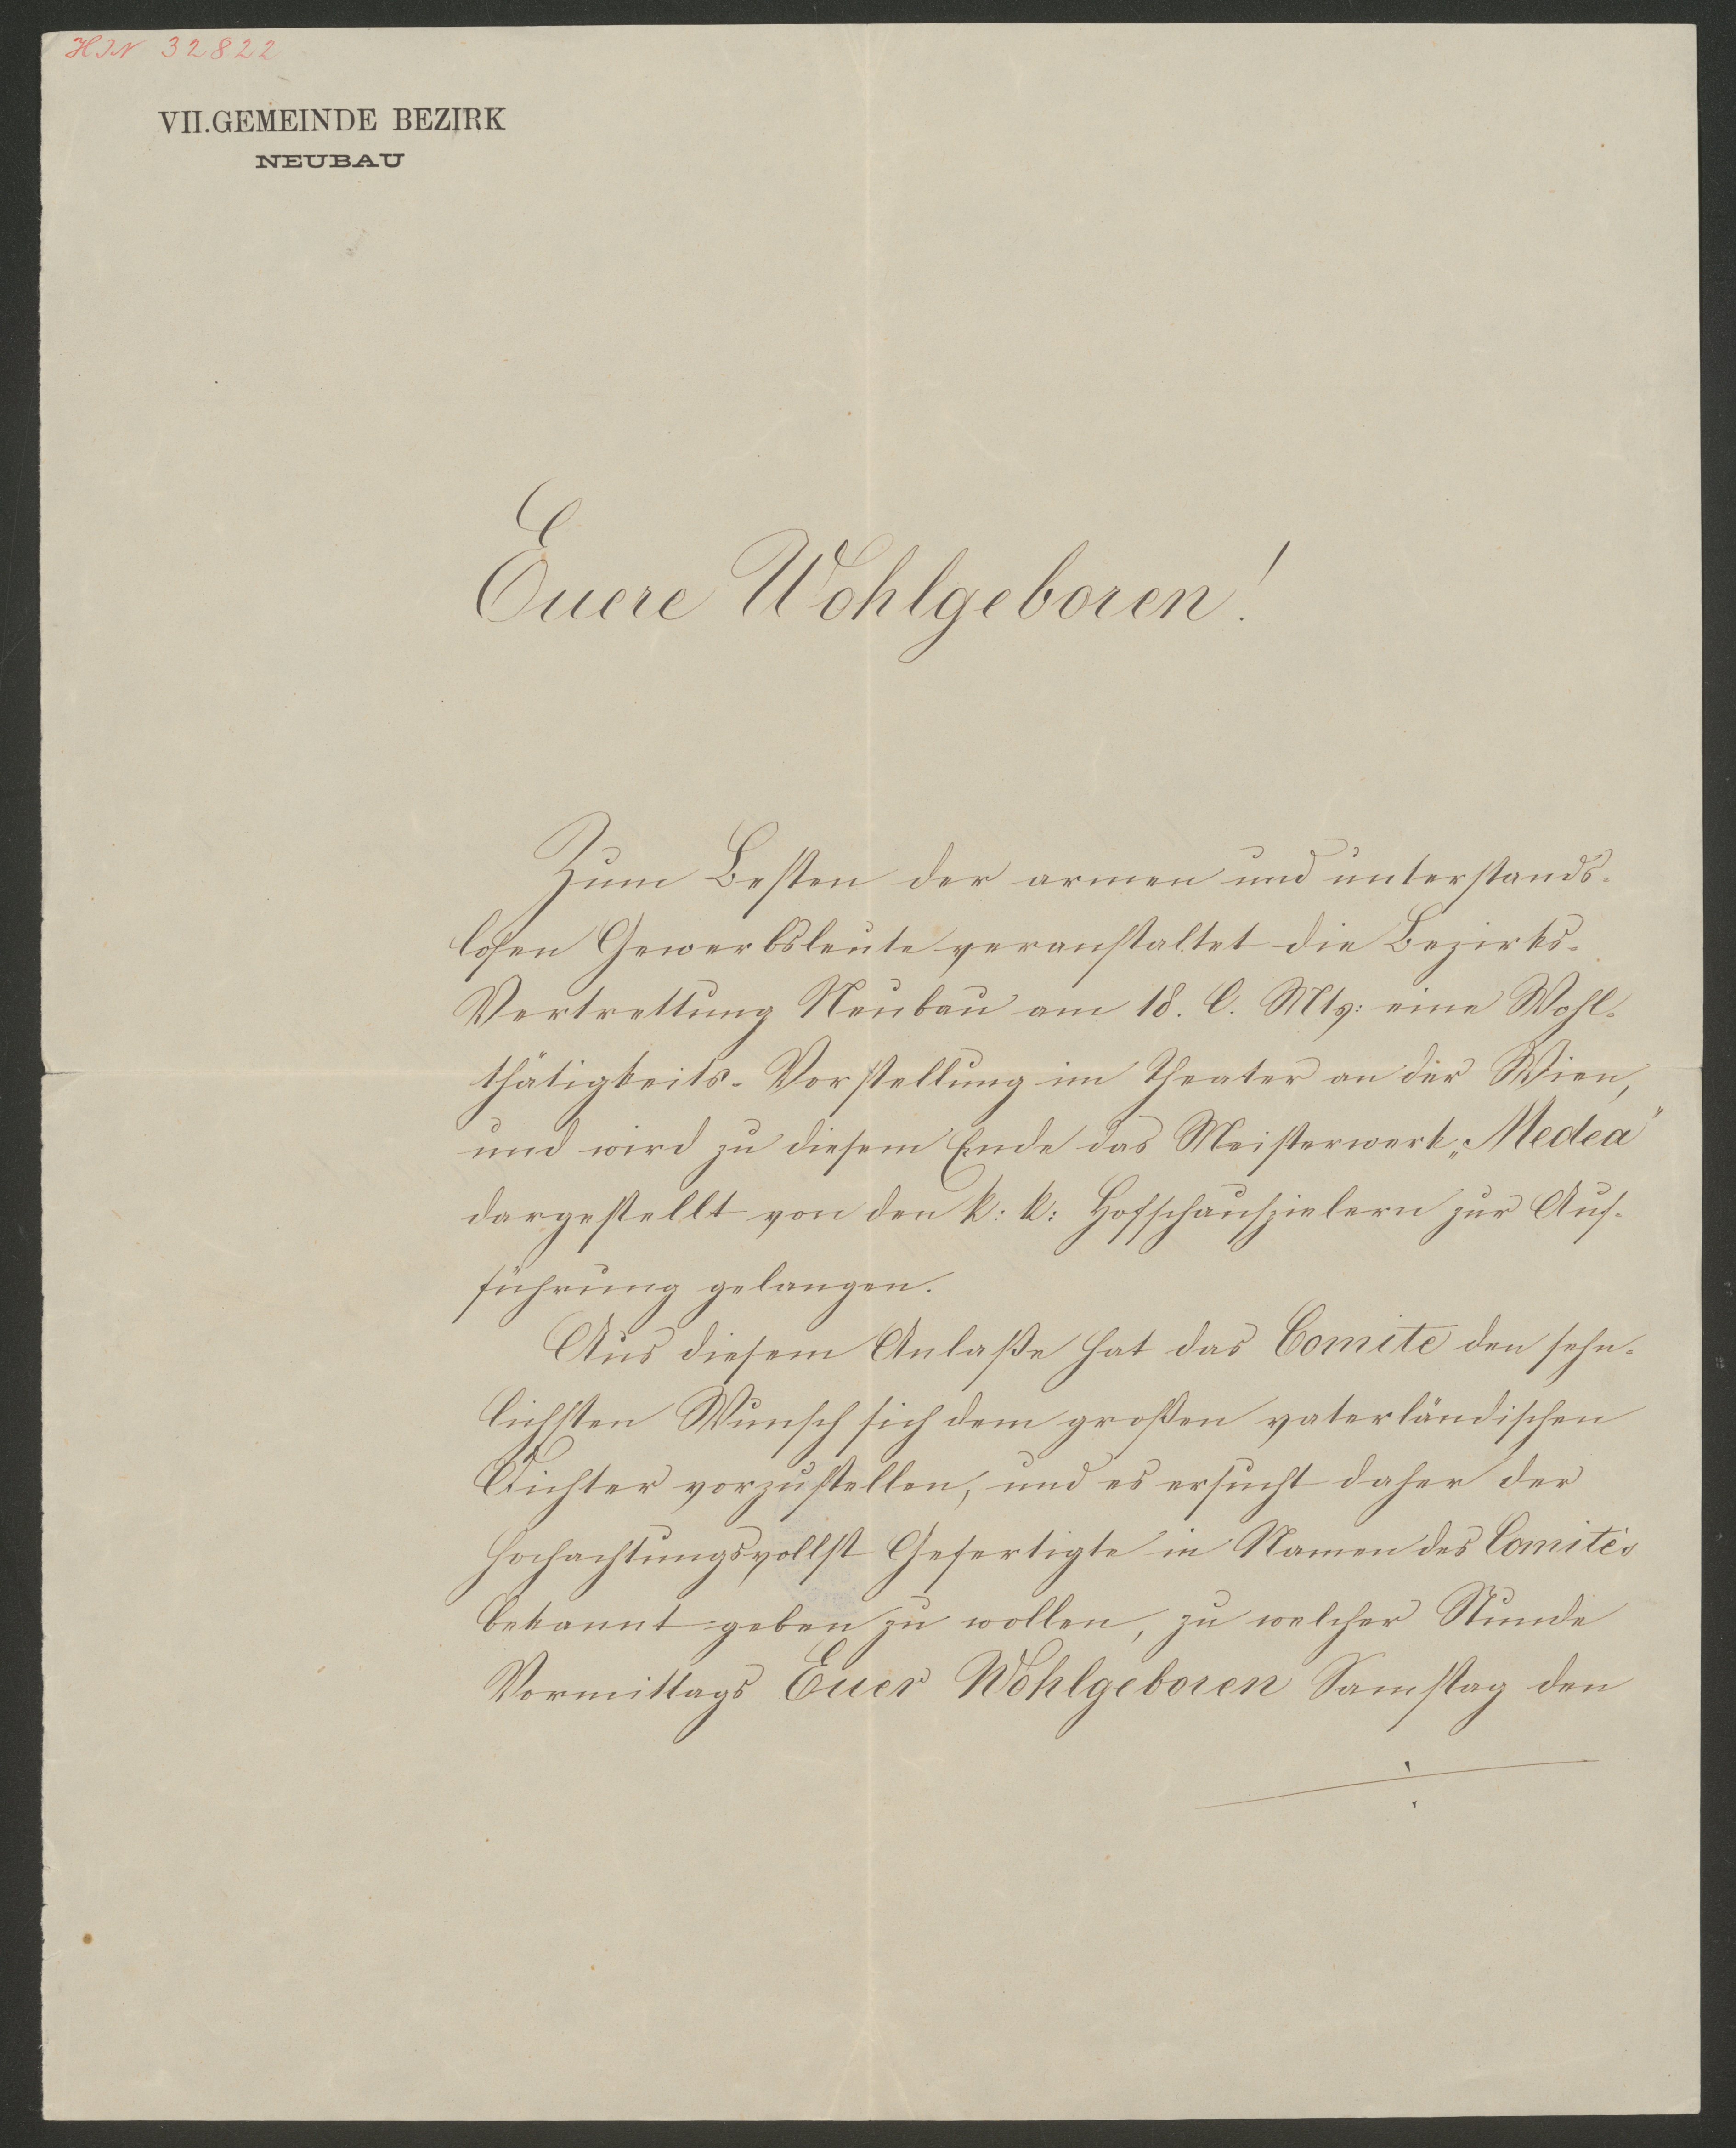 HIN 32822
VII.GEMEINDE BEZIRK
NEUBAU
Euere Wohlgeboren!
Zum Besten der armen und unterstands-
losen Gewerbsleute veranstaltet die Bezirks-
Vertrettung Neubau am 18. l. Mts: eine Wohl-
thätigkeits-Vorstellung im Theater an der Wien,
und wird zu diesem Ende das Meisterwerk „Medea"
dargestellt von den k: k: Hofschauspielern zur Auf-
führung gelangen.
Aus diesem Anlaße hat das Comite den sehn-
lichsten Wunsch sich dem großen vaterländischen
Dichter vorzustellen, und es ersucht daher der
hochachtungsvollst Gefertigte in Namen des Comités
bekannt geben zu wollen, zu welcher Stunde
Vormittags Euer Wohlgeboren Samstag den